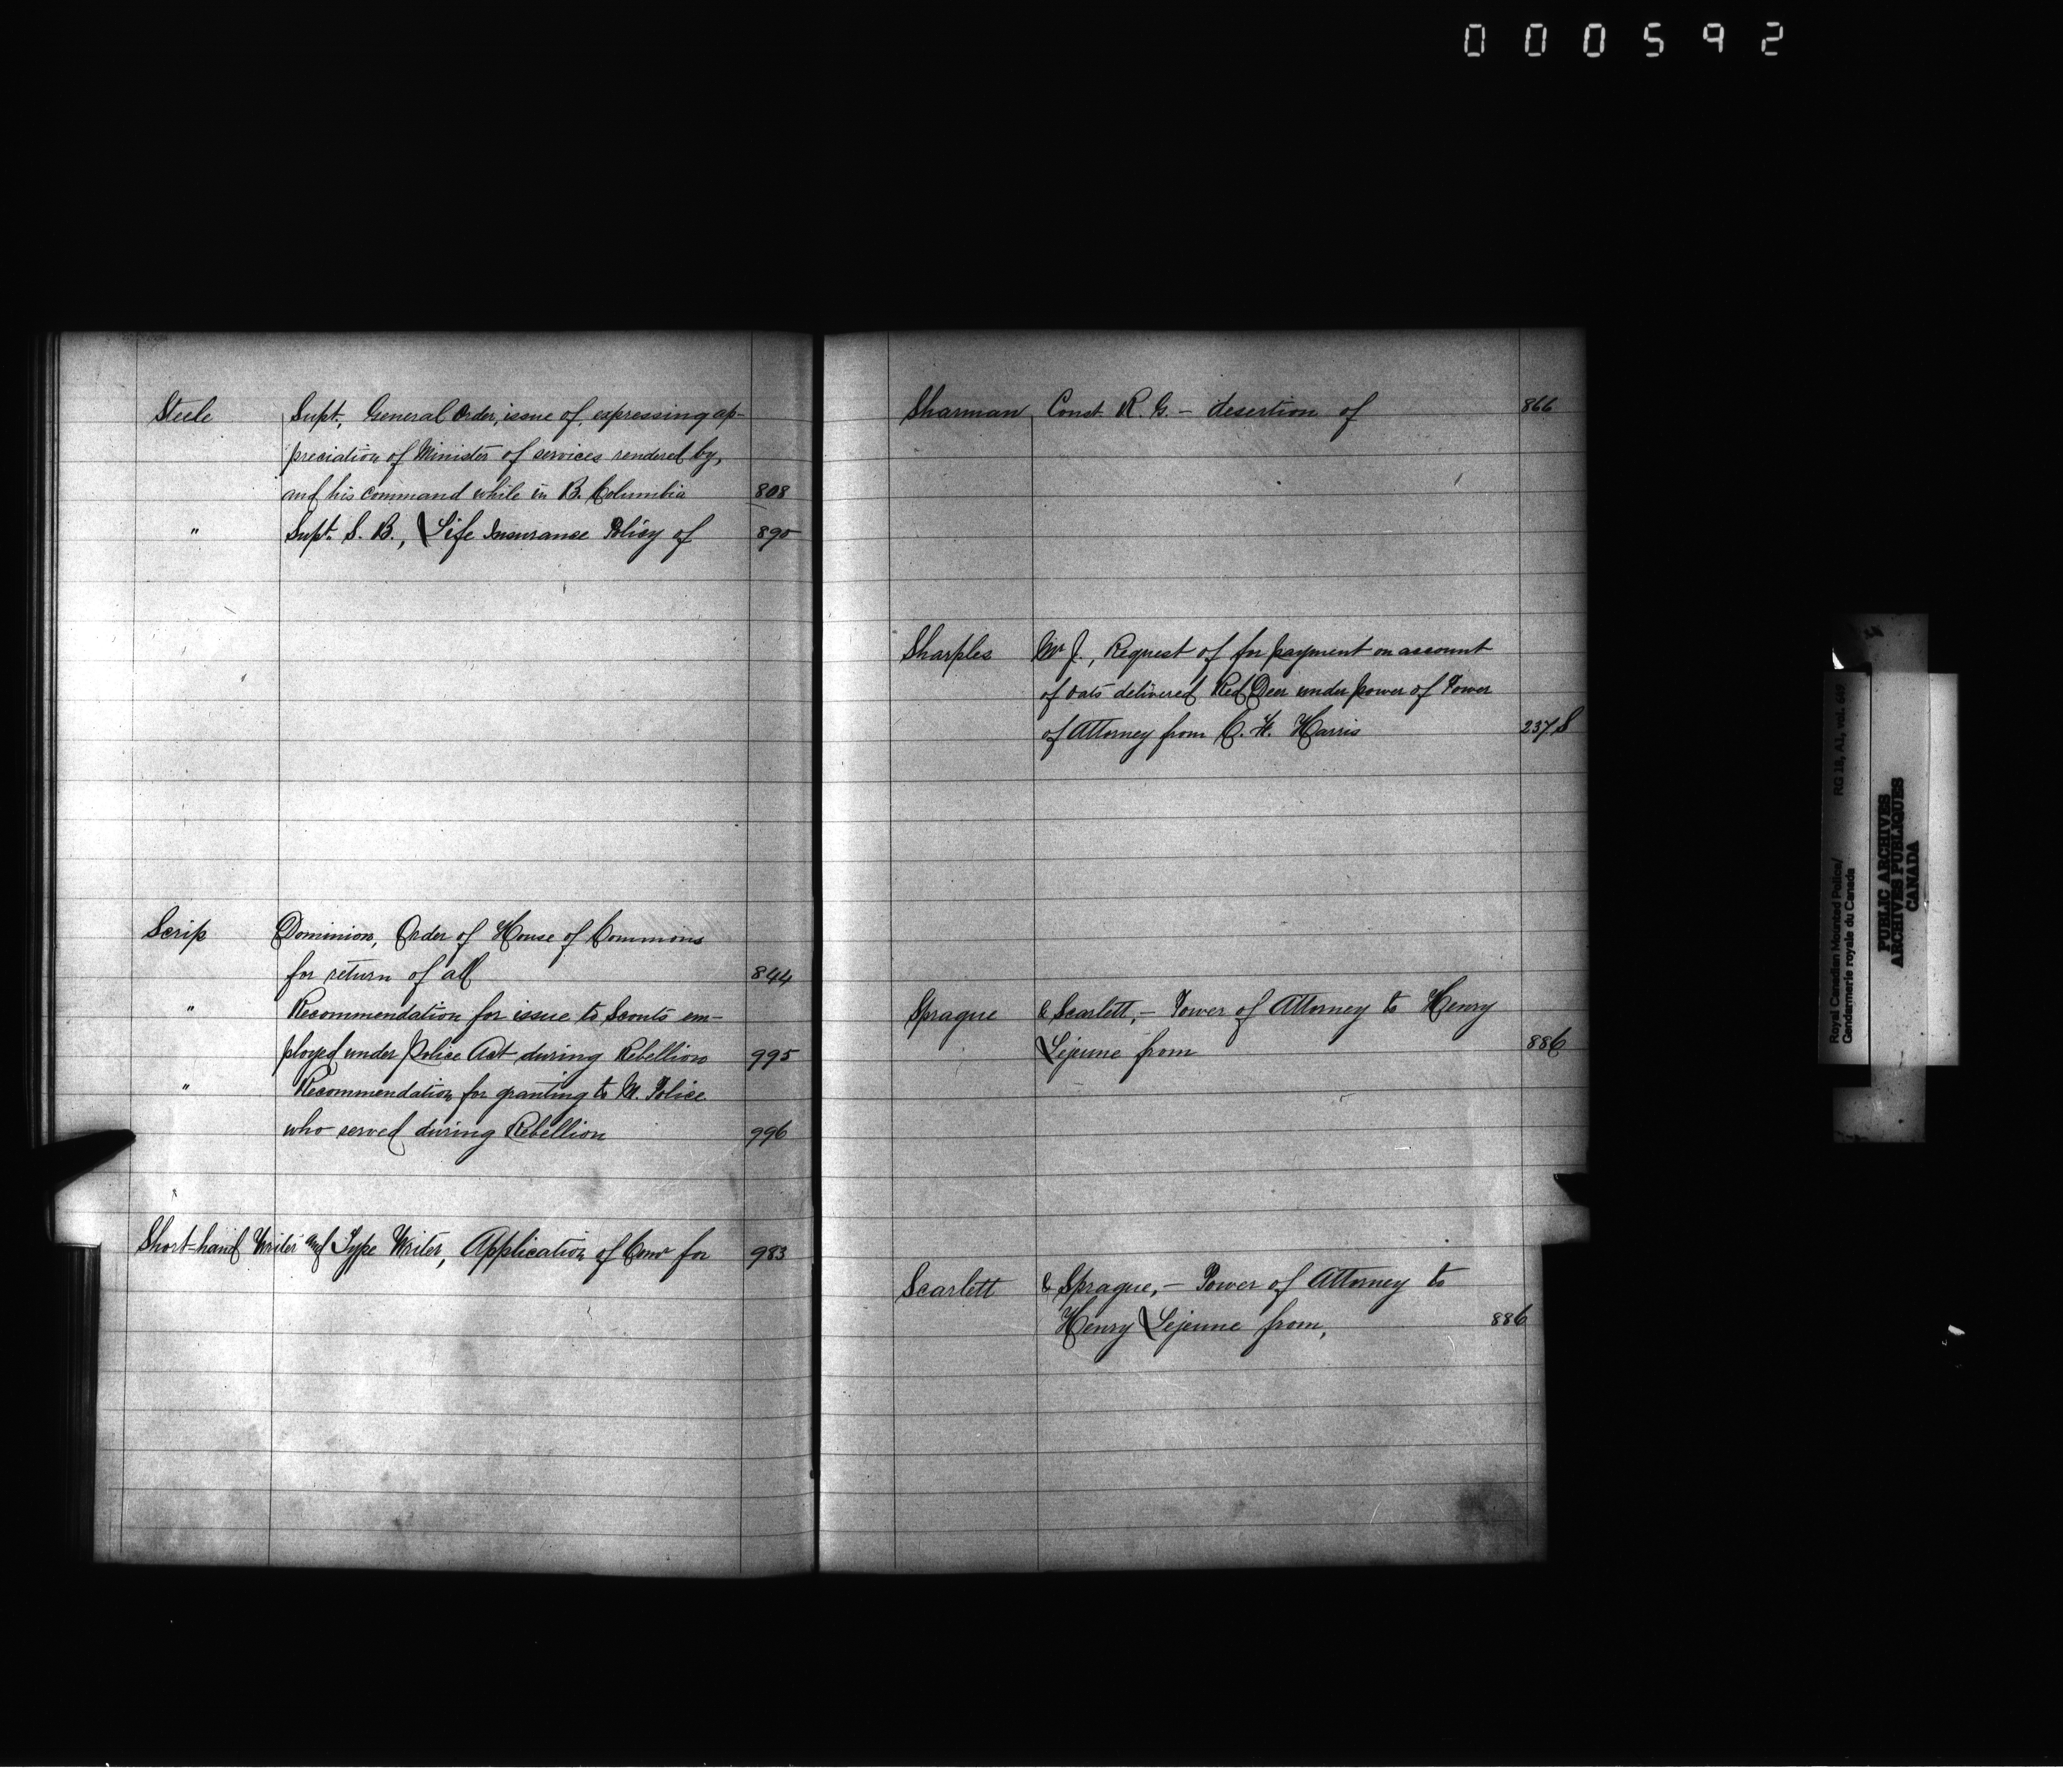 000592
Steele Supt., General Order, issue of, expressing ap-
preciation of Minister of services rendered by,
and his command while in B. Columbia 808
" Supt. S. B., Life Insurance Policy of 890
Scrip Dominion, Order of House of Commons
for return of all 844
" Recommendation for issue to Scouts em-
ployed under Police Act during Rebellion 995
" Recommendation for granting to M. Police
who served during Rebellion 996
Short-hand Writer and Type Writer, Application of Comr for 983
Sharman, Const R. G. - desertion of 866
Sharples Mr J., Request of for payment on account
of oats delivered Red Deer under power of Power
of Attorney from C. H. Harris 237 S
Sprague & Scarlett, - Power of Attorney to Henry
Lejeune from 886
Scarlett & Sprague, - Power of Attorney to
Henry Lejeune from, 886
Royal Canadian Mounted Police/
Gendarmerie royale du Canada
RG 18, A1, vol. 649
PUBLIC ARCHIVES
ARCHIVES PUBLIQUES
CANADA